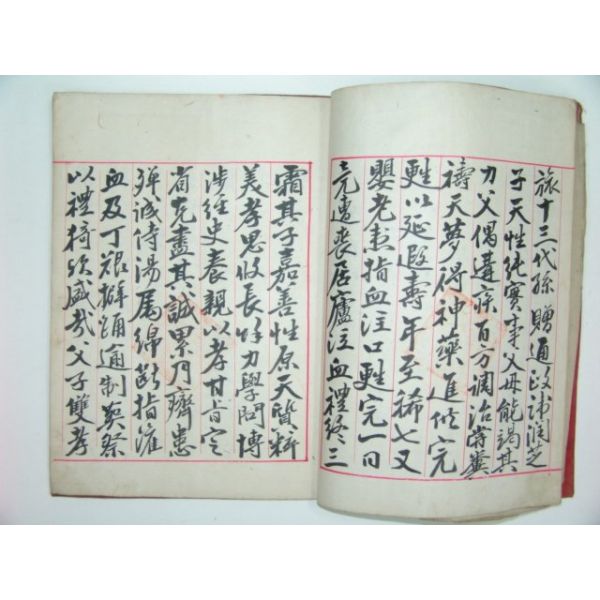 旅十三代孫 贈通政 潤芝
子天性純實事父母能竭其
力父偶遘疾百方調治嘗糞
禱天夢得神藥進候完
甦以延遐壽年至稀七又
嬰老患指血注口甦完一日
竟遭喪居廬泣血禮終三
霜其子嘉善性原天質粹
美孝思攸長好力學問博
涉經史養親以孝甘旨定
省克盡其誠累月齊患
殫誠侍湯屬纊斷指灌
血及丁艱擗踊通制葬祭
以禮猗歟盛哉父子雙孝